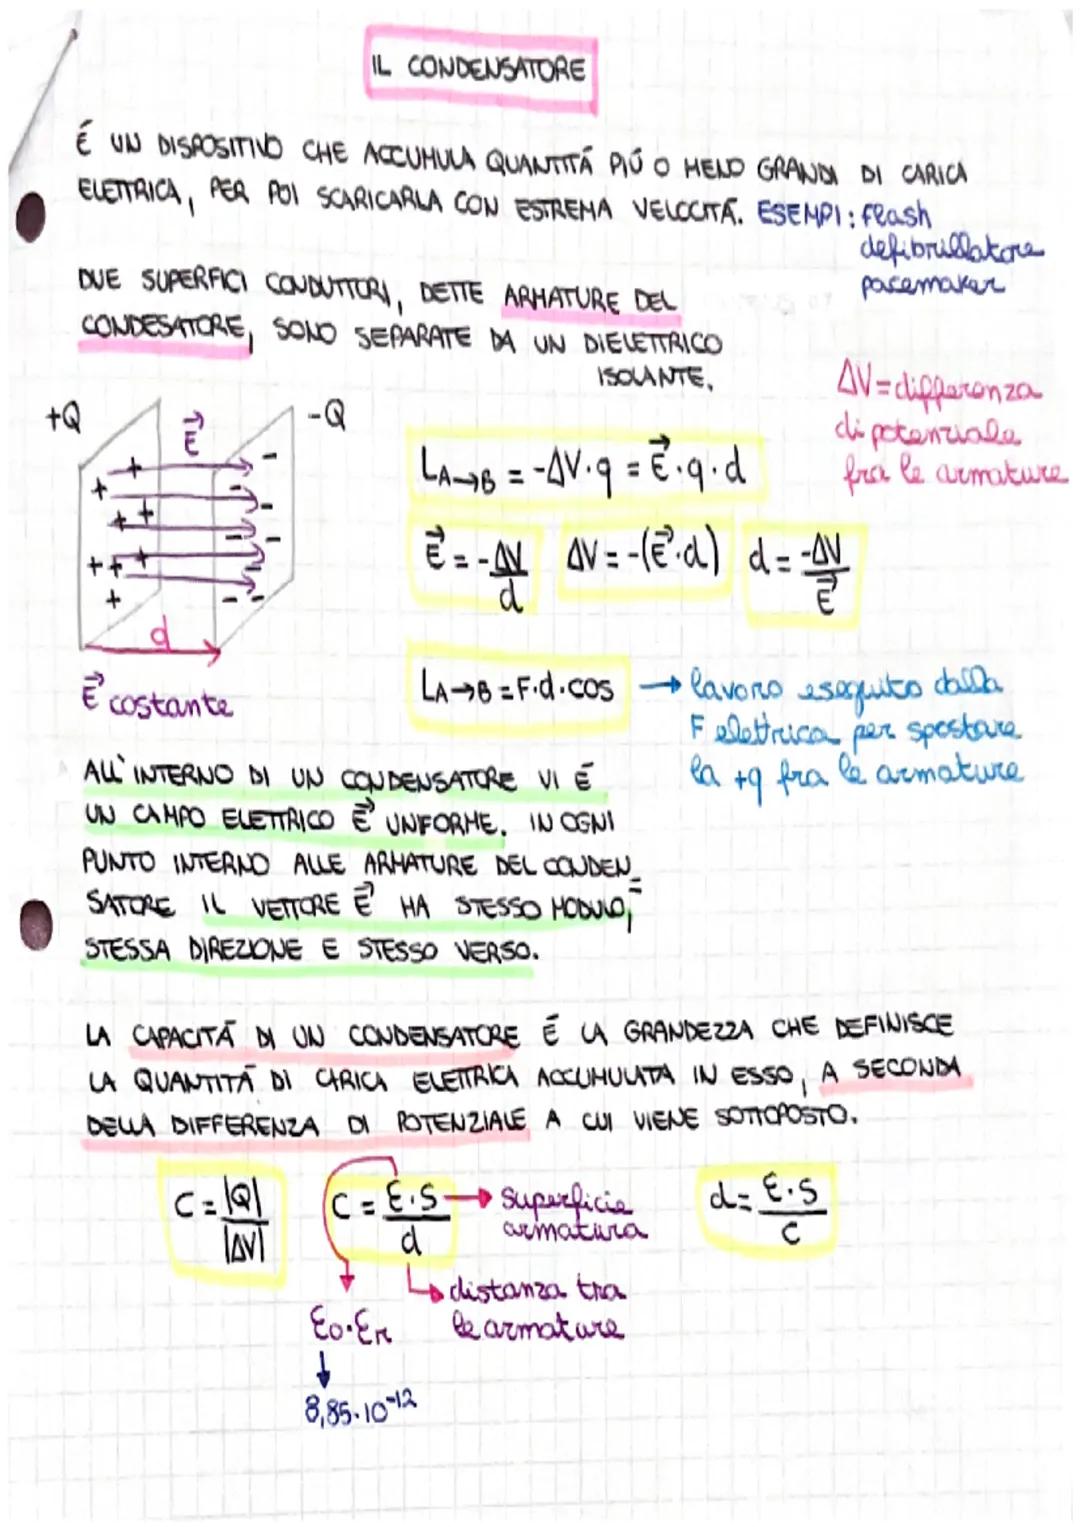 IL CONDENSATORE
É UN DISPOSITIVO CHE ACCUMULA QUANTITÁ PIÚ O MENO GRANDI DI CARICA
ELETTRICA, PER POI SCARICARLA CON ESTREMA VELOCITÁ. ESEMPI: flash
defibrillatore
pacemaker
DUE SUPERFICI CONDUTTORI, DETTE ARMATURE DEL
CONDESATORE, SONO SEPARATE DA UN DIELETTRICO
ISOLANTE.
ΔV=differenza
di potenziale
fra le armature
+Q E⃗ -Q
d
E⃗ costante
LA→B = -ΔV·q = E⃗·q·d
E⃗ = -ΔV/d ΔV = -(E⃗·d) d = -ΔV/E⃗
LA→B = F·d·cos → lavoro eseguito dalla
F elettrica per spostare
la +q fra le armature
ALL'INTERNO DI UN CONDENSATORE VI É
UN CAMPO ELETTRICO E⃗ UNFORME. IN OGNI
PUNTO INTERNO ALLE ARMATURE DEL CONDEN=
SATORE IL VETTORE E⃗ HA STESSO MODULO,
STESSA DIREZIONE E STESSO VERSO.
LA CAPACITÁ DI UN CONDENSATORE É LA GRANDEZZA CHE DEFINISCE
LA QUANTITÁ DI CARICA ELETTRICA ACCUMULATA IN ESSO, A SECONDA
DELLA DIFFERENZA DI POTENZIALE A CUI VIENE SOTTOPOSTO.
C = |Q|/|ΔV| C = ε·S/d → Superficie
armatura
d = ε·S/C
distanza tra
le armature
εo·εr
↓
8,85·10⁻¹²